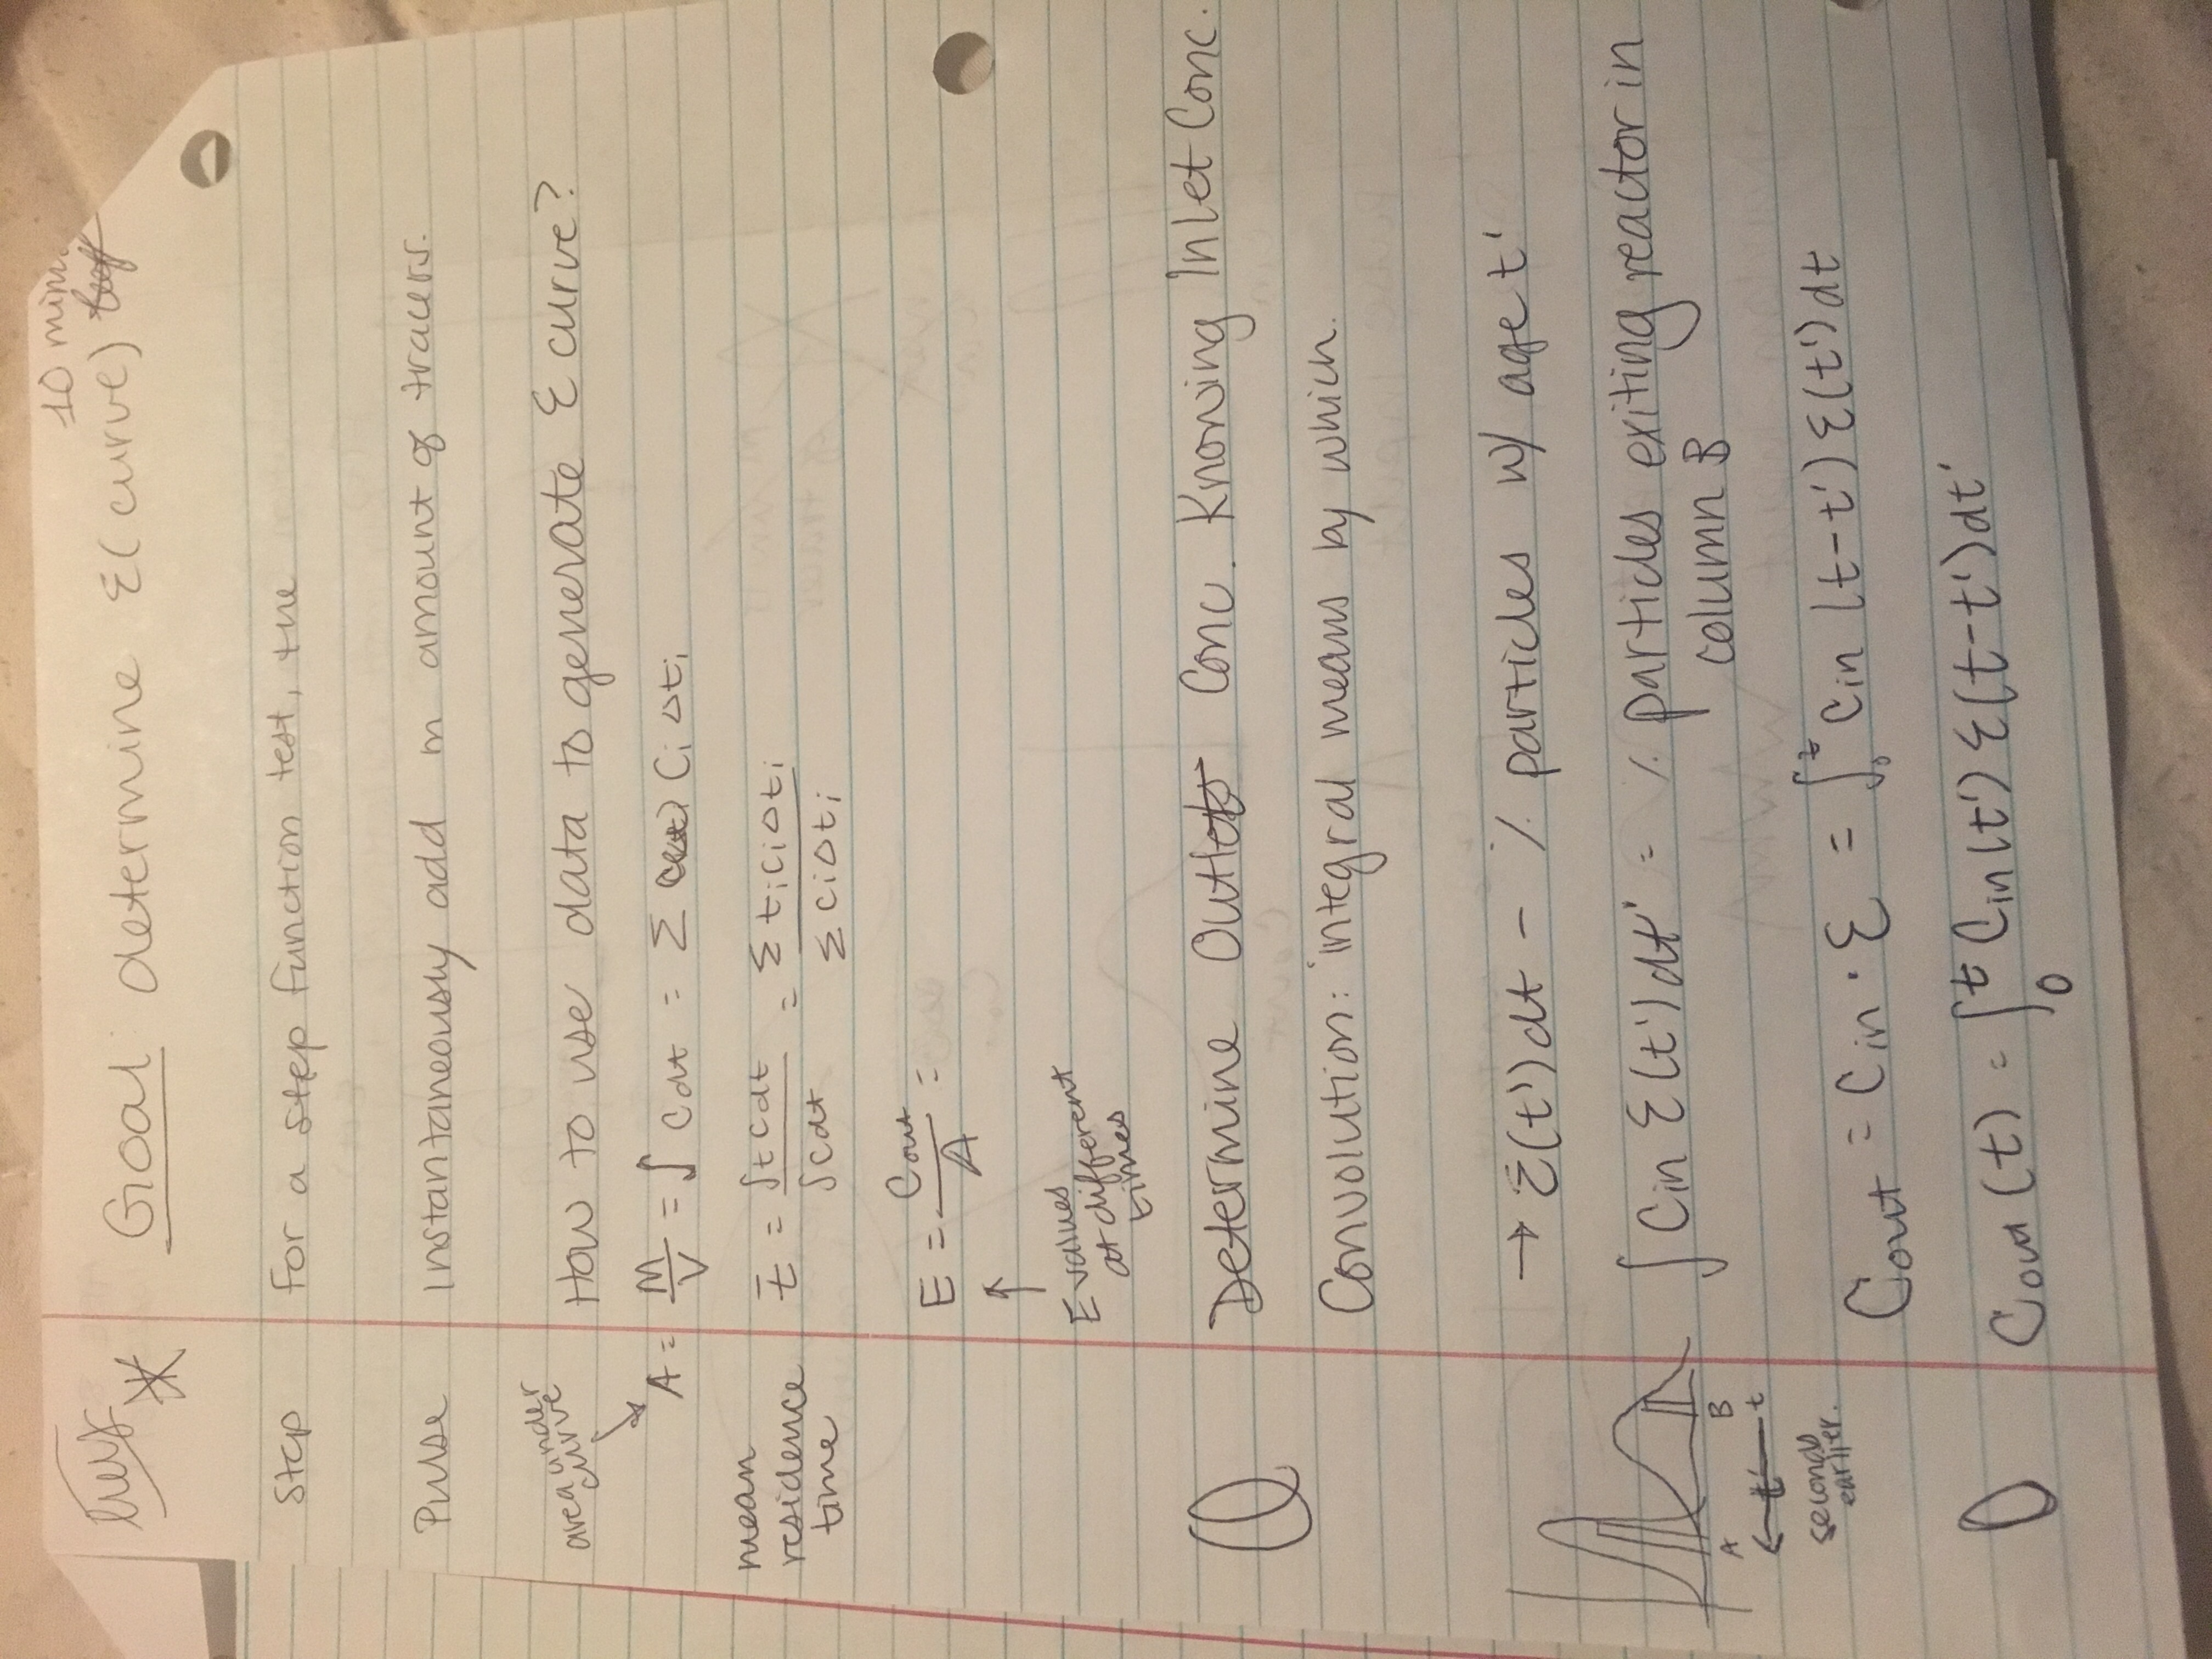 10 min.
Goal determine Ɛ(curve)
Step For a step function test, the
Pulse Instantaneously add m amount of tracers.
area under
curve
How to use data to generate Ɛ curve?
A = M/V = ∫ C dt = Σ Ci Δti
mean
residence
time
t̄ = ∫t C dt / ∫C dt = Σ ti Ci Δti / Σ Ci Δti
E = Cout / A =
E values
at different
times
Q Determine Outlet Conc. Knowing Inlet Conc.
Convolution: integral means by which.
→ Ɛ(t')dt - % particles w/ age t'
∫ Cin Ɛ(t')dt' = % particles exiting reactor in
column B
A B
t' t
seconds
earlier.
Cout = Cin · Ɛ = ∫₀ᵗ Cin (t-t') Ɛ(t')dt
Cout (t) = ∫₀ᵗ Cin(t') Ɛ(t-t')dt'